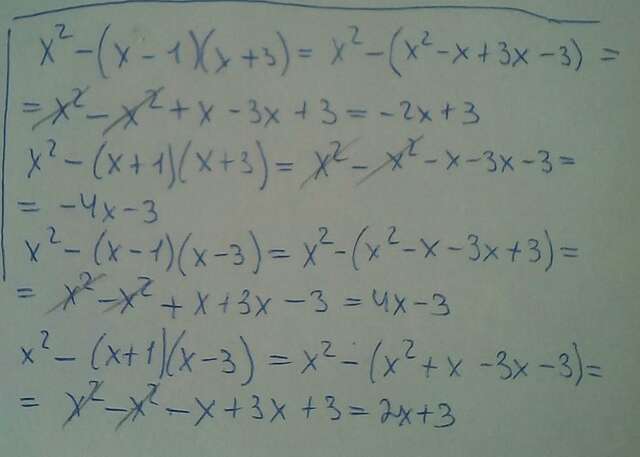 x² - (x - 1)(x + 3) = x² - (x² - x + 3x - 3) =
= x² - x² + x - 3x + 3 = -2x + 3
x² - (x + 1)(x + 3) = x² - x² - x - 3x - 3 =
= -4x - 3
x² - (x - 1)(x - 3) = x² - (x² - x - 3x + 3) =
= x² - x² + x + 3x - 3 = 4x - 3
x² - (x + 1)(x - 3) = x² - (x² + x - 3x - 3) =
= x² - x² - x + 3x + 3 = 2x + 3